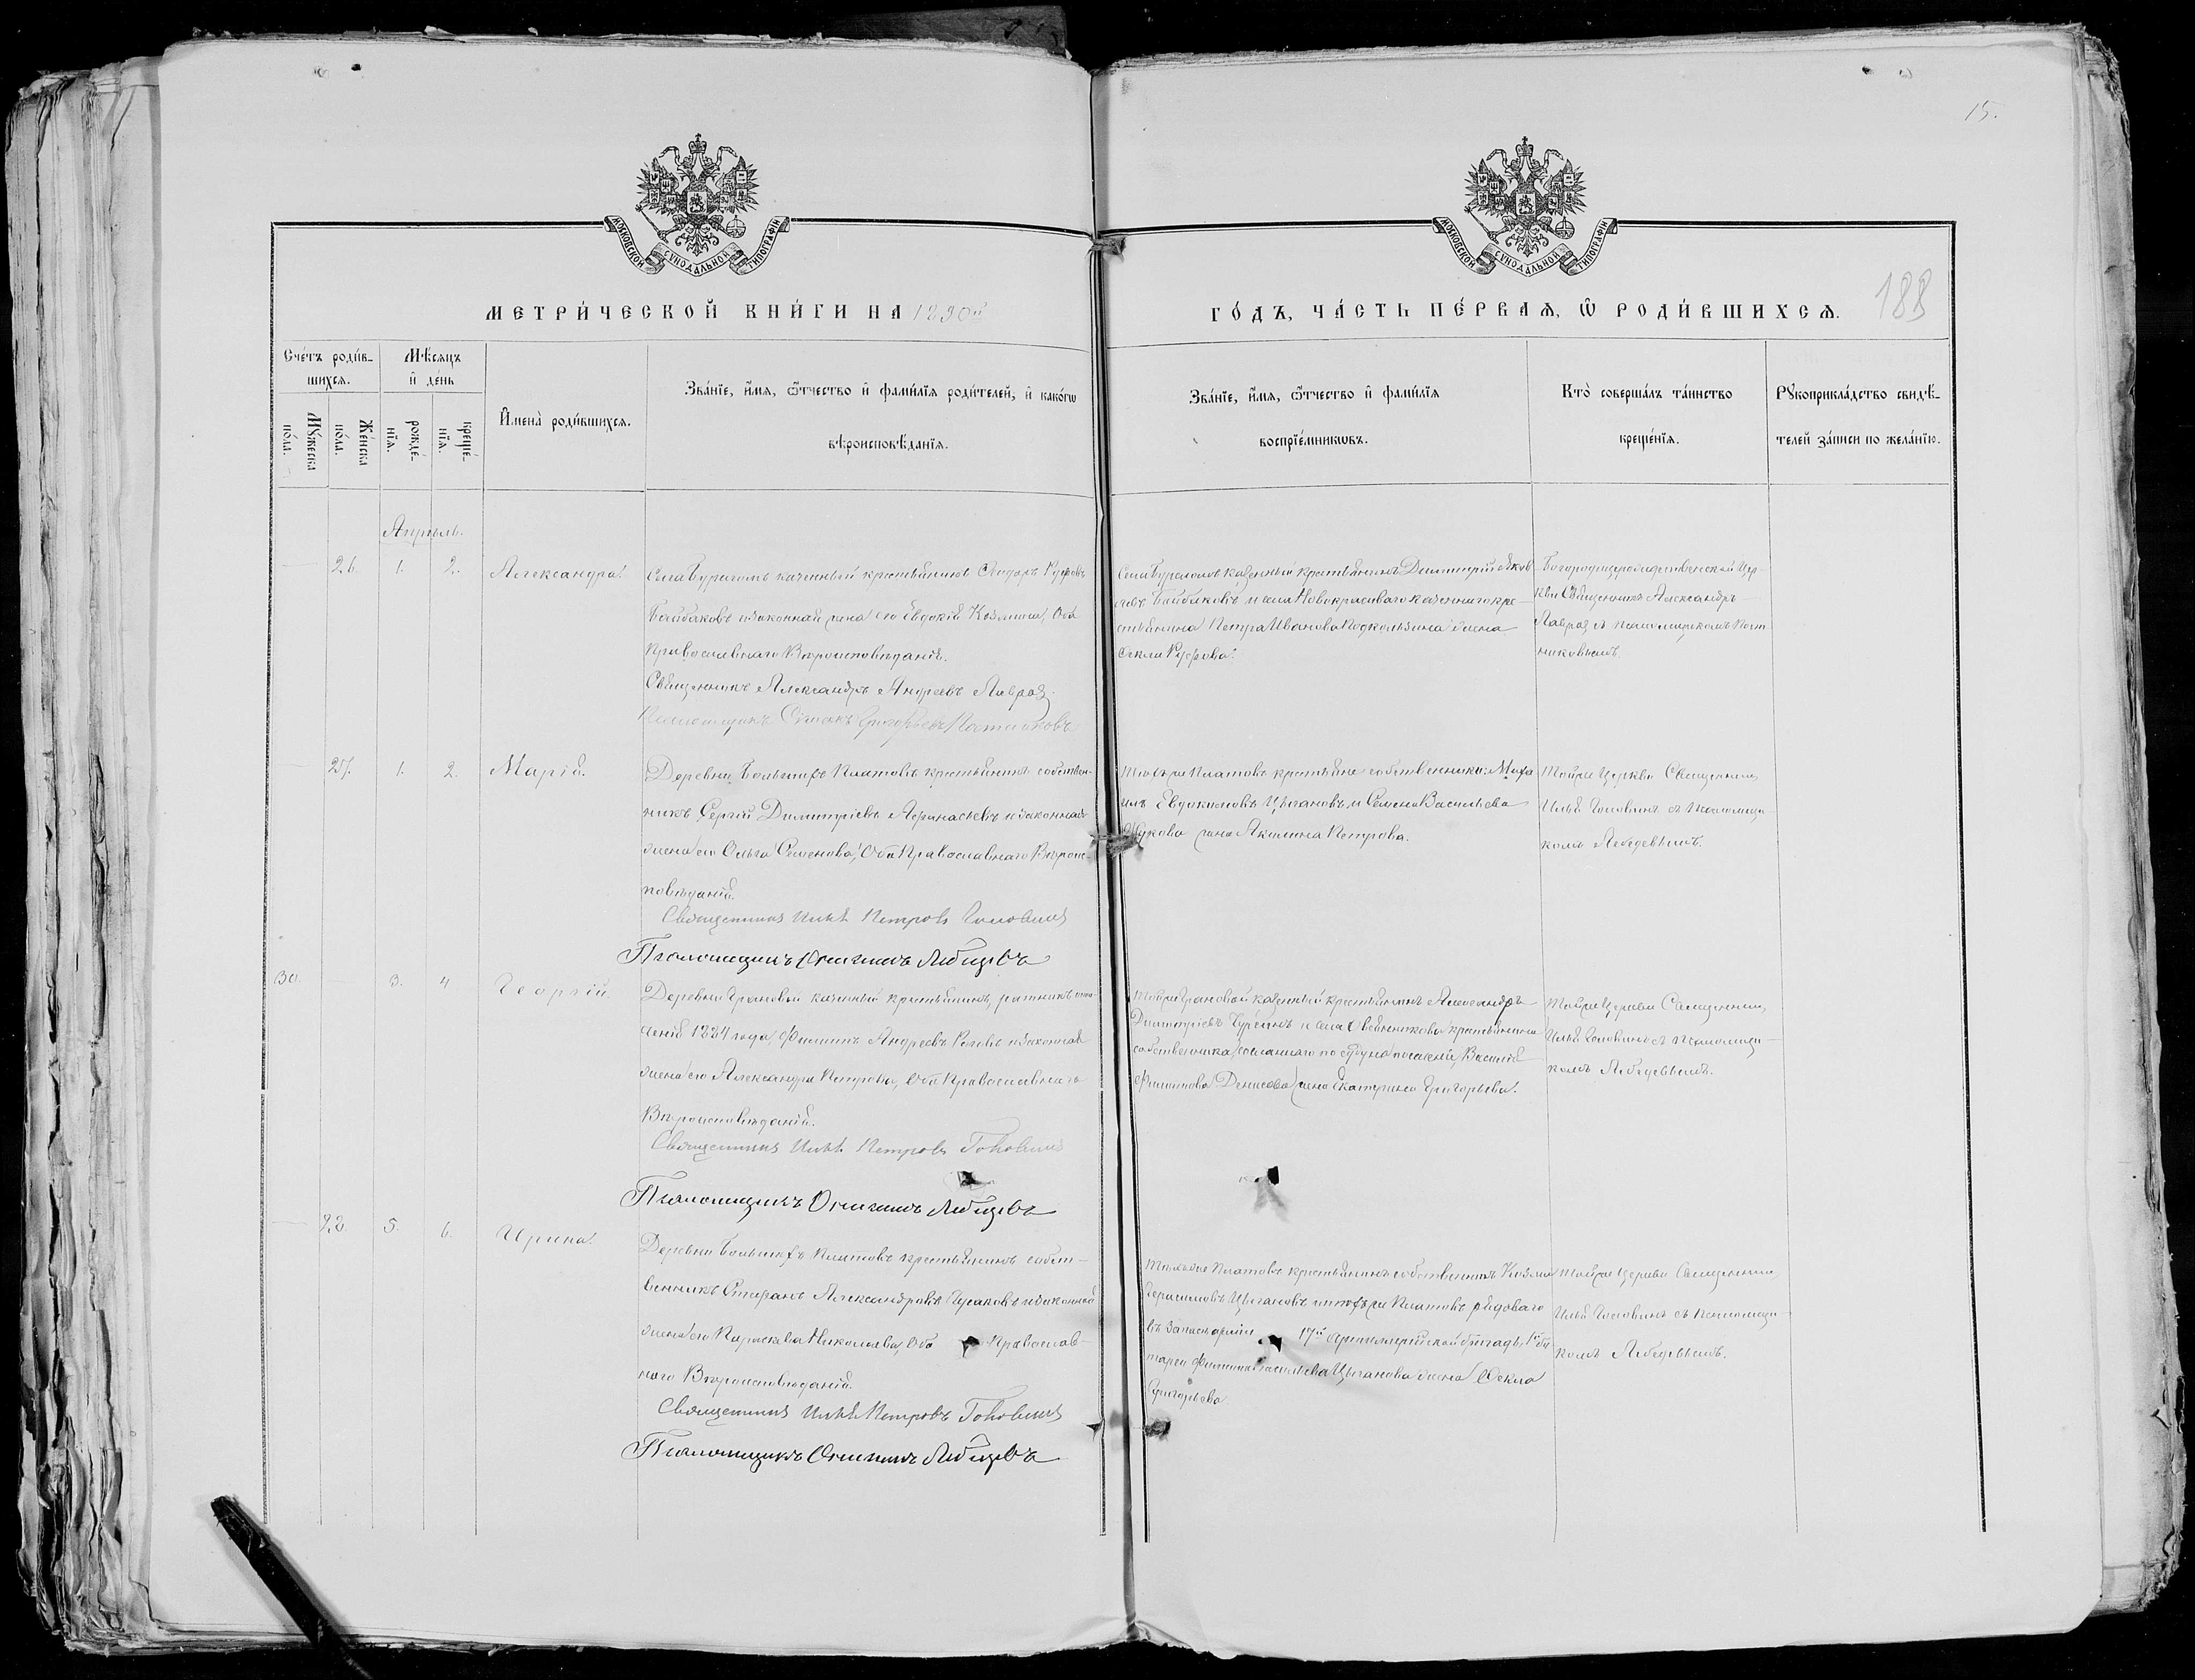 15.
МОСКОВСКОЙ СѴНОДАЛЬНОЙ ТИПОГРАФІИ
МОСКОВСКОЙ СѴНОДАЛЬНОЙ ТИПОГРАФІИ
МЕТРИ́ЧЕСКОЙ КНИ́ГИ НА 1890й
ГО́ДЪ, ЧА́СТЬ ПЕ́РВАѦ, Ѡ҆ РОДИ́ВШИХСѦ.
188
Сче́тъ роди́в-
шихсѧ.
Мѣ́сѧцъ
и҆ де́нь
Мꙋ́жеска по́ла.
Же́нска по́ла.
рожде́-нїѧ.
креще́-нїѧ.
И҆мена̀ роди́вшихсѧ.
Зва́нїе, и҆́мѧ, ѻ҆́тчество и҆ фами́лїѧ роди́телей, и҆ како́гѡ
вѣроисповѣ́данїѧ.
Зва́нїе, и҆́мѧ, ѻ҆́тчество и҆ фами́лїѧ
воспрїе́мникѡвъ.
Кто̀ соверша́лъ та́инство
креще́нїѧ.
Рꙋкоприкла́дство свидѣ́-
телей за́писи по жела́нїю.
Апрѣль.
26. 1. 2. Александра.
казенный крестьянинъ
Байбаковъ и законная жена его Евдокія Козьмина, Оба
Православнаго Вѣроисповѣданія.
Священникъ Александръ Андреевъ Лавровъ
Псаломщикъ Григорьевъ
казенный крестьянинъ Димитрій Яков-
левъ Байбаковъ и села казеннаго кре-
стьянина Петра Иванова жена
Богородицерождественской Цер-
кви Священникъ Александръ
съ псаломщикомъ
27. 1. 2. Марія.
Деревни Большихъ Платовъ крестьянинъ собствен-
никъ Сергій Димитріевъ Афанасьевъ и законная
жена его Ольга Семенова, Оба Православнаго Вѣроис-
повѣданія.
Священникъ Илья Петровъ Головинъ
Псаломщикъ Лебедевъ
Тѣхъ же Платовъ крестьяне собственники: Миха-
илъ Евдокимовъ Цыгановъ и Семена Васильева
Жукова жена Акилина Петрова.
Той же Церкви Священникъ
Илья Головинъ съ Псаломщи-
комъ Лебедевымъ.
30. 3. 4 Георгій.
Деревни Грановой казенный крестьянинъ, ратникъ
1884 года, Филиппъ Андреевъ и законная
жена его Александра Петрова, Оба Православнаго
Вѣроисповѣданія.
Священникъ Илья Петровъ Головинъ
Псаломщикъ Лебедевъ
Той же Грановой казенный крестьянинъ Александръ
Димитріевъ и села Овсянникова крестьянина
собственника, сосланнаго по суду на поселеніе, Василія
Филиппова Денисова жена Екатерина Григорьева.
Той же Церкви Священникъ
Илья Головинъ съ Псаломщи-
комъ Лебедевымъ.
28. 5. 6. Ирина.
Деревни Большихъ Платовъ крестьянинъ собст-
венникъ Стефанъ Александровъ и законная
жена его Параскева Николаева, Оба Православ-
наго Вѣроисповѣданія.
Священникъ Илья Петровъ Головинъ
Псаломщикъ Лебедевъ
Тѣхъ же Платовъ крестьянинъ собственникъ Козьма
Герасимовъ Цыгановъ и тѣхъ же Платовъ рядоваго
въ запасѣ арміи 17й Артиллерійской бригады 1й ба-
тареи Филиппа Васильева Цыганова жена Ѳекла
Григорьева
Той же Церкви Священникъ
Илья Головинъ съ Псаломщи-
комъ Лебедевымъ.